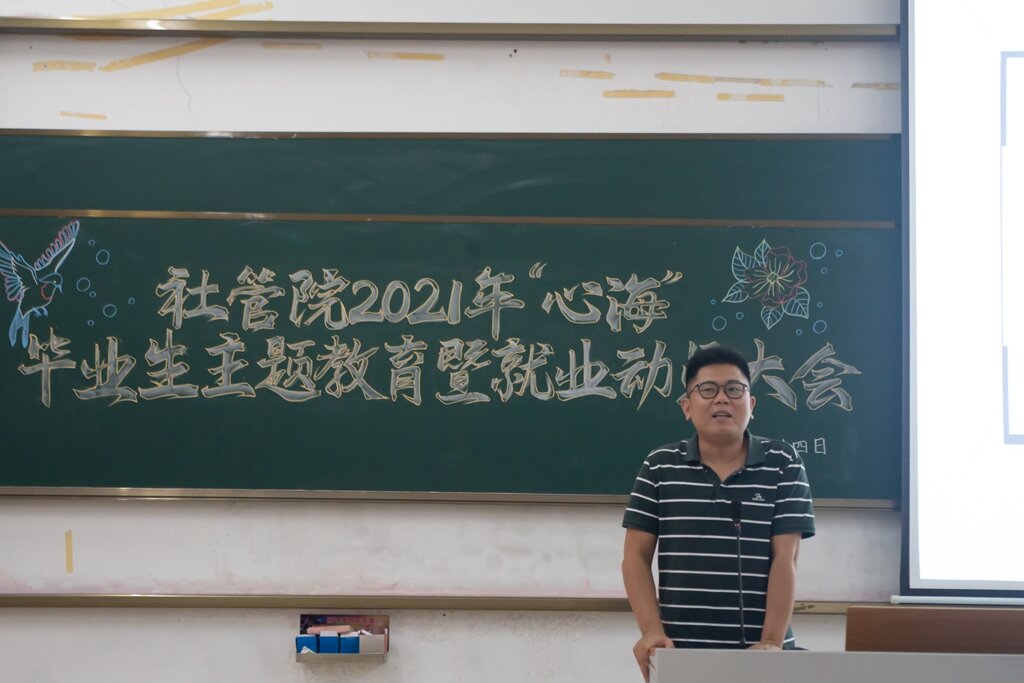 社管院2021年“心海”
毕业生主题教育暨就业动员大会
四日